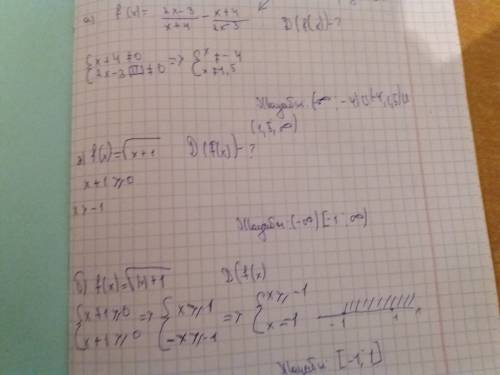 a) f(x) = 2x-3/x+4 - x+4/2x-3 D(f(x)-?
{x+4≠0 => {x≠-4
{2x-3≠0 {x≠1,5
Жауабы: (-∞; -4)∪(-4; 1,5)∪
(1,5, ∞)
а) f(x)=√x+1 D(f(x)-?
x+1⩾0
x>-1
Жауабы: (-∞)[-1; ∞)
б) f(x)=√|x|+1 D(f(x)
{x+1⩾0 => {x⩾-1 => {x⩾-1
{x+1⩾0 {-x⩾-1 {x=1
-1 1
Жауабы: [-1; 1]